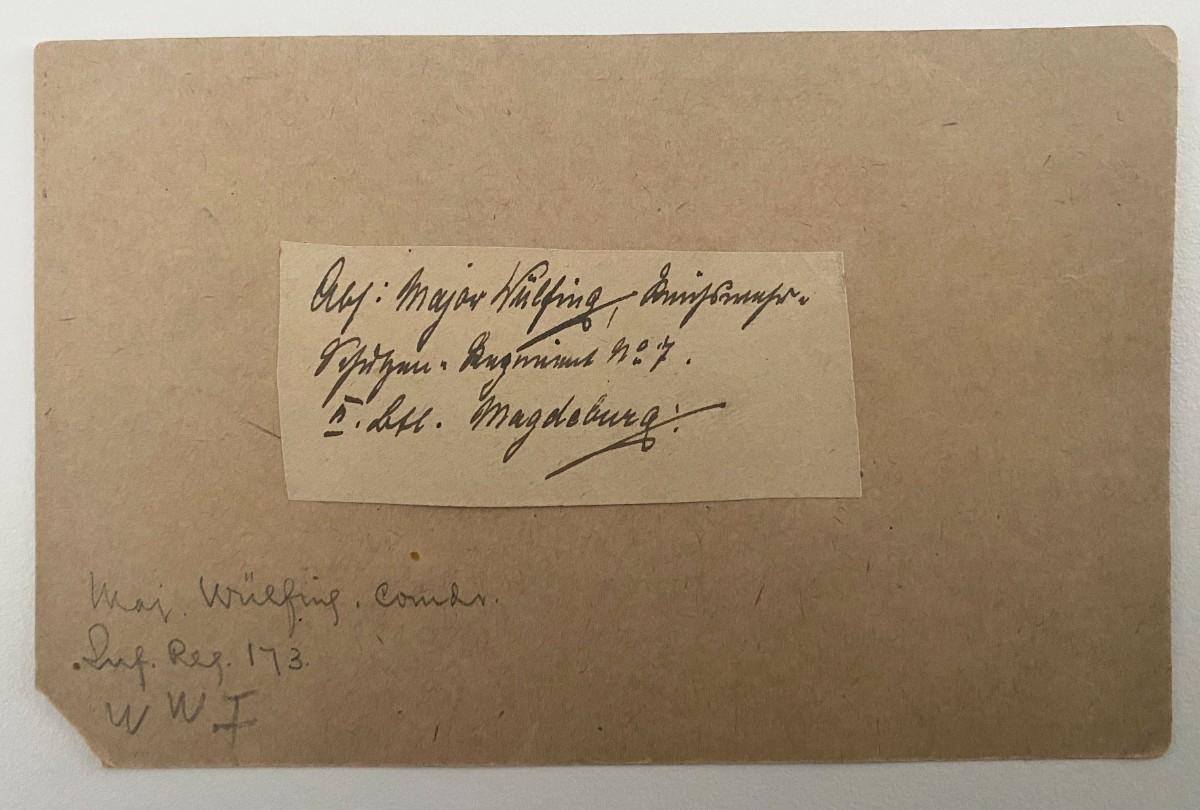 Abs: Major Wülfing, Reichswehr-
Schützen-Regiment No 7.
II. Btl. Magdeburg.
Maj. Wülfing. Comdr.
Inf. Reg. 173.
W W I